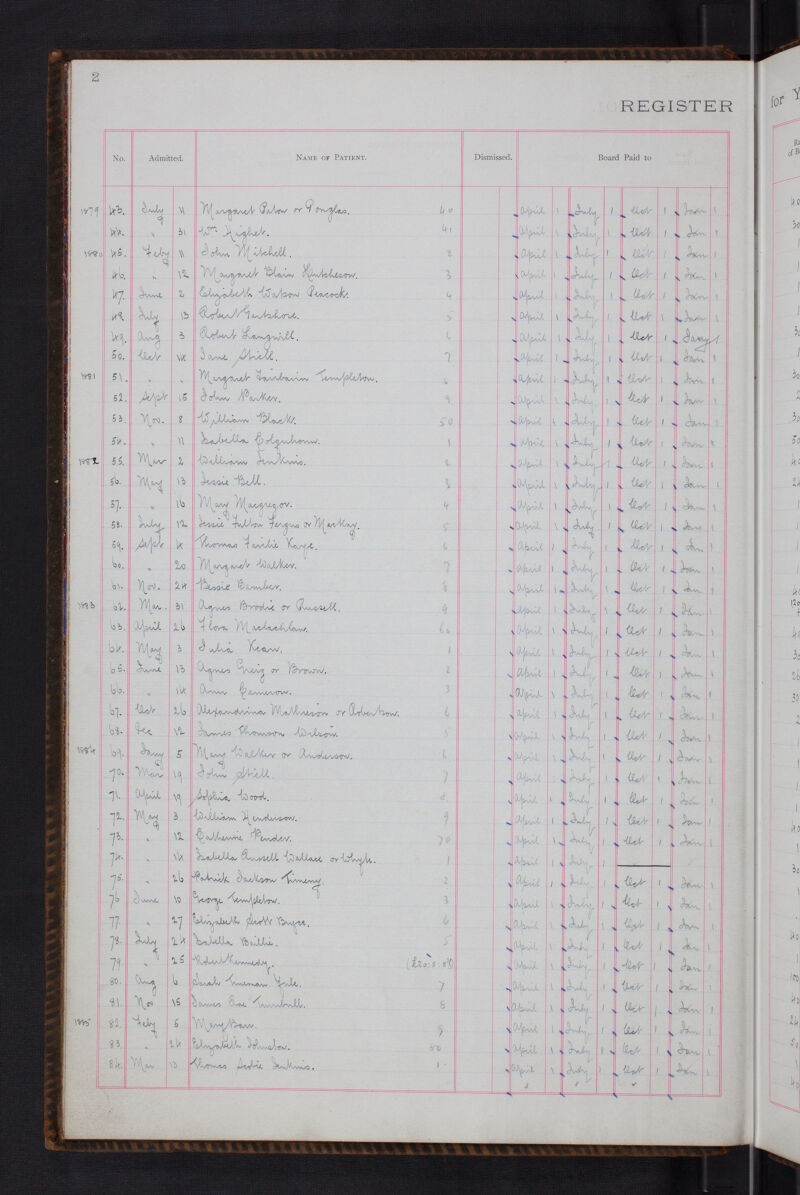 2
REGISTER
for Y
No. Admitted. Name of Patient. Dismissed. Board Paid to
1879 43. July 11 Margaret Paton or Douglas. 40 April 1 July 1 Oct 1 Jan 1
44. " 31 Wm. Highet. 41 April 1 July 1 Oct 1 Jan 1
1880 45. Feby 11 John Mitchell. 2 April 1 July 1 Oct 1 Jan 1
46. " 12 Margaret Blain Hutcheson. 3 April 1 July 1 Oct 1 Jan 1
47. June 2 Elizabeth Watson Peacock. 4 April 1 July 1 Oct 1 Jan 1
48. July 13 Robert 5 April 1 July 1 Oct 1 Jan 1
49. Aug 3 Robert Langwill. 6 April 1 July 1 Oct 1 Jany 1
50. Oct 14 Jane Stiell. 7 April 1 July 1 Oct 1 Jan 1
1881 51. " " Margaret Fairbairn Templeton. April 1 July 1 Oct 1 Jan 1
52. Sept 15 John Parker. 9 April 1 July 1 Oct 1 Jan 1
53. Nov. 8 William Black. 50 April 1 July 1 Oct 1 Jan 1
54. " 11 Isabella Colquhoun. 1 April 1 July 1 Oct 1 Jan 1
1882 55. Mar 2 William Jenkins. 2 April 1 July 1 Oct 1 Jan 1
56. May 13 Jessie Bell. 3 April 1 July 1 Oct 1 Jan 1
57. " 16 Mary Macgregor. 4 April 1 July 1 Oct 1 Jan 1
58. July 12 Jessie Fulton Fergus or MacKay. 5 April 1 July 1 Oct 1 Jan 1
59. Sept 4 Thomas Fairlie Kaye. 6 April 1 July 1 Oct 1 Jan 1
60. " 20 Margaret Walker. 7 April 1 July 1 Oct 1 Jan 1
61. Nov. 24 Bessie Bamber. 8 April 1 July 1 Oct 1 Jan 1
1883 62. Mar. 31 Agnes Brodie or Russell. 9 April 1 July 1 Oct 1 Jan 1
63. April 26 Flora Maclachlan. 60 April 1 July 1 Oct 1 Jan 1
64. May 3 Julia Kean. 1 April 1 July 1 Oct 1 Jan 1
65. June 13 Agnes Greig or Brown. 2 April 1 July 1 Oct 1 Jan 1
66. " 14 Ann Cameron. 3 April 1 July 1 Oct 1 Jan 1
67. Oct 26 Alexandrina Matheson or Robertson. 4 April 1 July 1 Oct 1 Jan 1
68. Dec 12 James Thomson Wilson. 5 April 1 July 1 Oct 1 Jan 1
1884 69. Jany 5 Mary Walker or Anderson. 6 April 1 July 1 Oct 1 Jan 1
70. Mar 19 John Stiell. 7 April 1 July 1 Oct 1 Jan 1
71. April 19 Sophia Wood. 8 April 1 July 1 Oct 1 Jan 1
72. May 3 William Henderson. 9 April 1 July 1 Oct 1 Jan 1
73. " 12 Catherine Pender. 70 April 1 July 1 Oct 1 Jan 1
74. " 14 Isabella Russell Wallace or Whyte. 1 April 1 July 1
75. " 26 Patrick Jackson 2 April 1 July 1 Oct 1 Jan 1
76 June 10 George Templeton. 3 April 1 July 1 Oct 1 Jan 1
77. " 27 Elizabeth Scott Bryce. 4 April 1 July 1 Oct 1 Jan 1
78. July 24 Isabella Baillie. 5 April 1 July 1 Oct 1 Jan 1
79. " 25 Robert Kennedy. April 1 July 1 Oct 1 Jan 1
80. Aug 6 Sarah 7 April 1 July 1 Oct 1 Jan 1
81. Nov 15 James Turnbull. 8 April 1 July 1 Oct 1 Jan 1
1885 82. Feby 5 Mary Barr. 9 April 1 July 1 Oct 1 Jan 1
83. " 24 Elizabeth Johnston. 80 April 1 July 1 Oct 1 Jan 1
84. Mar 13 Thomas Jenkins. 1 April 1 July 1 Oct 1 Jan 1